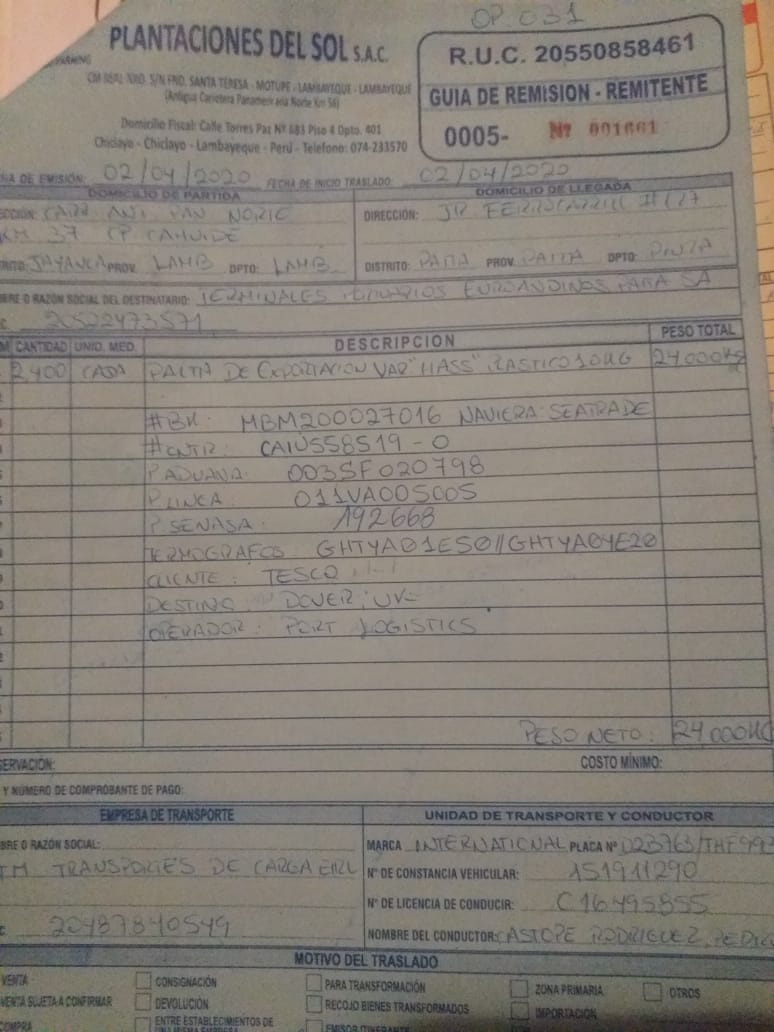 OP. 031
PLANTACIONES DEL SOL S.A.C.
FARMING
R.U.C. 20550858461
S/N FND. SANTA TERESA - MOTUPE - LAMBAYEQUE - LAMBAYEQUE
(Antigua Carretera Panamericana Norte Km 56)
GUIA DE REMISION - REMITENTE
Domicilio Fiscal: Calle Torres Paz Nº 683 Piso 4 Dpto. 401
0005- Nº 001661
Chiclayo - Chiclayo - Lambayeque - Perú - Telefono: 074-233570
DE EMISIÓN: 02/04/2020 FECHA DE INICIO TRASLADO: 02/04/2020
DOMICILIO DE PARTIDA DOMICILIO DE LLEGADA
CARR ANT. PAN NORTE DIRECCIÓN: JR FERROCARRIL #127
KM 37 CP CAHUIDE
JAYANCA PROV. LAMB DPTO: LAMB DISTRITO: PAITA PROV. PAITA DPTO: PIURA
BRE O RAZÓN SOCIAL DEL DESTINATARIO: TERMINALES PORTUARIOS EUROANDINOS PAITA SA
C 20522473571
M CANTIDAD UNID. MED. DESCRIPCION PESO TOTAL
2,400 CAJA PALTA DE EXPORTACION VAR "HASS" PLASTICO 10KG 24.000KG
#BK: MBM200027016 NAVIERA: SEATRADE
#CNTR: CAIU558519-0
P. ADUANA: 003SF020798
P. LINEA: 011VA005005
P. SENASA: 192668
TERMOGRAFOS: GHTYA01E50//GHTYA04E20
CLIENTE: TESCO
DESTINO: DOVER, UK
OPERADOR: PORT LOGISTICS
PESO NETO: 24.000KG
SERVACIÓN: COSTO MÍNIMO:
Y NÚMERO DE COMPROBANTE DE PAGO:
EMPRESA DE TRANSPORTE UNIDAD DE TRANSPORTE Y CONDUCTOR
BRE O RAZÓN SOCIAL: MARCA INTERNATIONAL PLACA Nº
TM TRANSPORTES DE CARGA EIRL Nº DE CONSTANCIA VEHICULAR: 151911290
Nº DE LICENCIA DE CONDUCIR: C16495855
C 20487840549 NOMBRE DEL CONDUCTOR: CASTOPE RODRIGUEZ, PEDRO
MOTIVO DEL TRASLADO
VENTA CONSIGNACIÓN PARA TRANSFORMACIÓN ZONA PRIMARIA OTROS
VENTA SUJETA A CONFIRMAR DEVOLUCIÓN RECOJO BIENES TRANSFORMADOS IMPORTACIÓN
COMPRA ENTRE ESTABLECIMIENTOS DE EMISOR ITINERANTE
LA MISMA EMPRESA